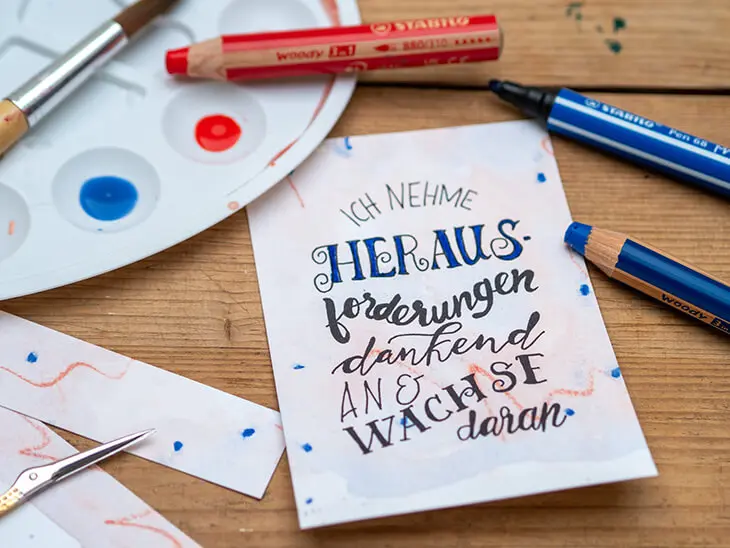 STABILO
woody 3in1
880/310
STABILO
Pen 68
woody 3
ICH NEHME
HERAUS-
forderungen
dankend
AN &
WACHSE
daran